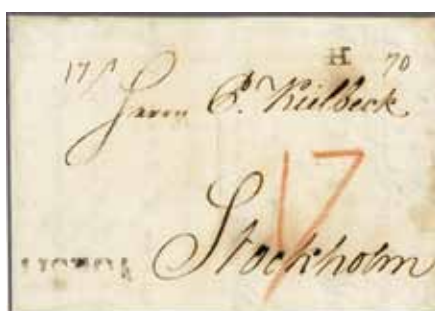 H 70
17
Herrn C. Kulbeck
17
Stockholm